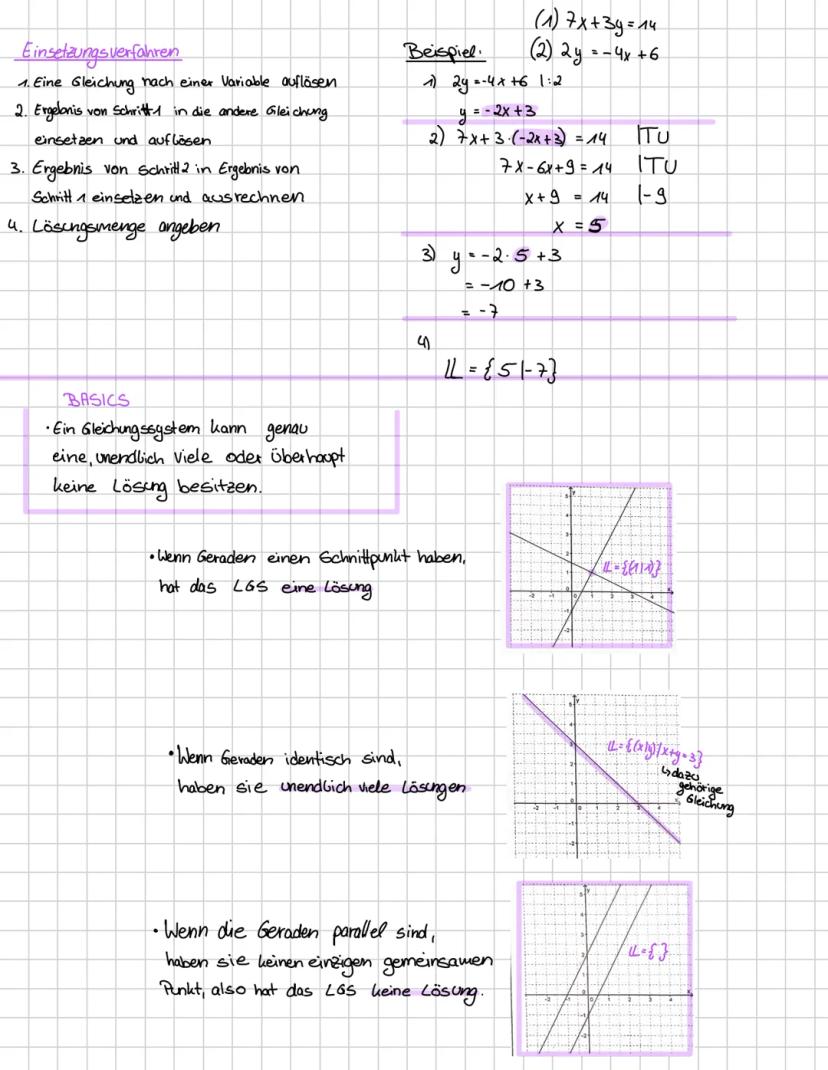 (1) 7x+3y=14
Einsetzungsverfahren
Beispiel:
(2) 2y = -4x +6
1. Eine Gleichung nach einer Variable auflösen
2. Ergebnis von Schritt 1 in die andere Gleichung
einsetzen und auflösen
3. Ergebnis von Schritt 2 in Ergebnis von
Schritt 1 einsetzen und ausrechnen
4. Lösungsmenge angeben
1) 2y = -4x +6 |:2
y = -2x+3
2) 7x+3·(-2x+3) = 14 |TU
7x-6x+9 = 14 |TU
x+9 = 14 |-9
x = 5
3) y = -2·5 +3
= -10 +3
= -7
4)
𝕃 = {5|-7}
BASICS
· Ein Gleichungssystem kann genau
eine, unendlich viele oder überhaupt
keine Lösung besitzen.
• Wenn Geraden einen Schnittpunkt haben,
hat das LGS eine Lösung
𝕃={(1|1)}
• Wenn Geraden identisch sind,
haben sie unendlich viele Lösungen
𝕃={(x|y)|x+y=3}
↳dazu
gehörige
Gleichung
• Wenn die Geraden parallel sind,
haben sie keinen einzigen gemeinsamen
Punkt, also hat das LGS keine Lösung.
𝕃={ }